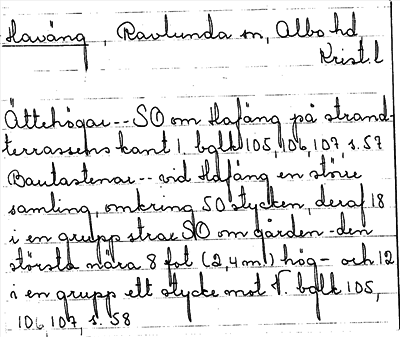 Haväng, Ravlunda sn, Albo hd
Krist.l
Ättehögar -- SO om Hafäng på strand-
terrassens kant 1. bglk 105, 106, 107, s. 57
Bautastenar -- vid Hafäng en större
samling, omkring 50 stycken, deraf 18
i en grupp strax SO om gården - den
största nära 8 fot (2,4 m) hög - och 12
i en grupp ett stycke mot V. bglk 105,
106, 107, s. 58